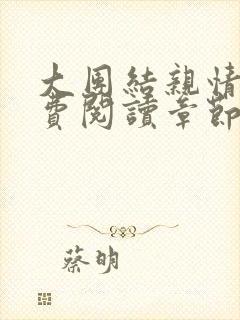 大團結親情
費閱讀章節
蔡明